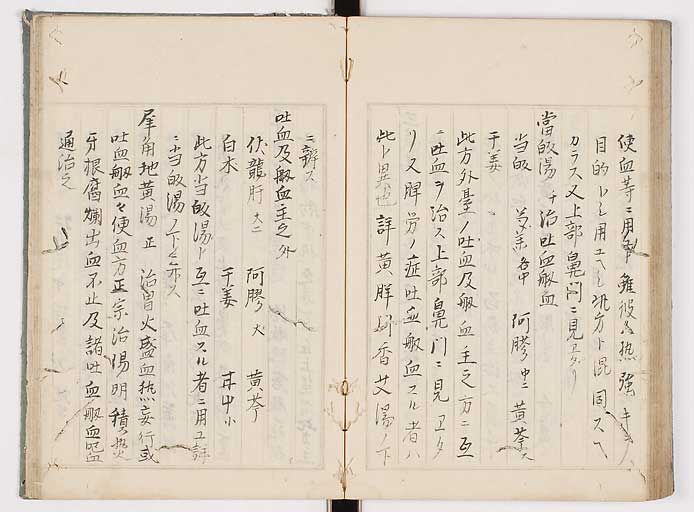 便血等ニ用
目的トシ用ユヘシ此方ト混同スヘ
カラス又上部鼻門ニ見ヱタリ
當皈湯 千 治吐血衂血
當皈 芍薬各中 阿膠中 黄芩大
干姜
此方外臺ノ吐血及衂血主之方ニ互
ニ吐血ヲ治ス上部鼻門ニ見ヱタ
リ又脾労ノ症吐血衂血スル者ハ
此ト異也 詳黄 艾湯ノ下
ニ辨ス
吐血及衂血主之 外
伏龍肝大 阿膠大 黄芩
白朮 干姜 甘中小
此方当皈湯ト互ニ吐血スル者ニ用ユ詳
ニ当皈湯ノ下ニ弁ス
犀角地黄湯 正 治胃火盛血热妄行或
吐血衂血々便血方正宗治陽明積热
牙根腐爛出血不止及諸吐血衂血
通治之